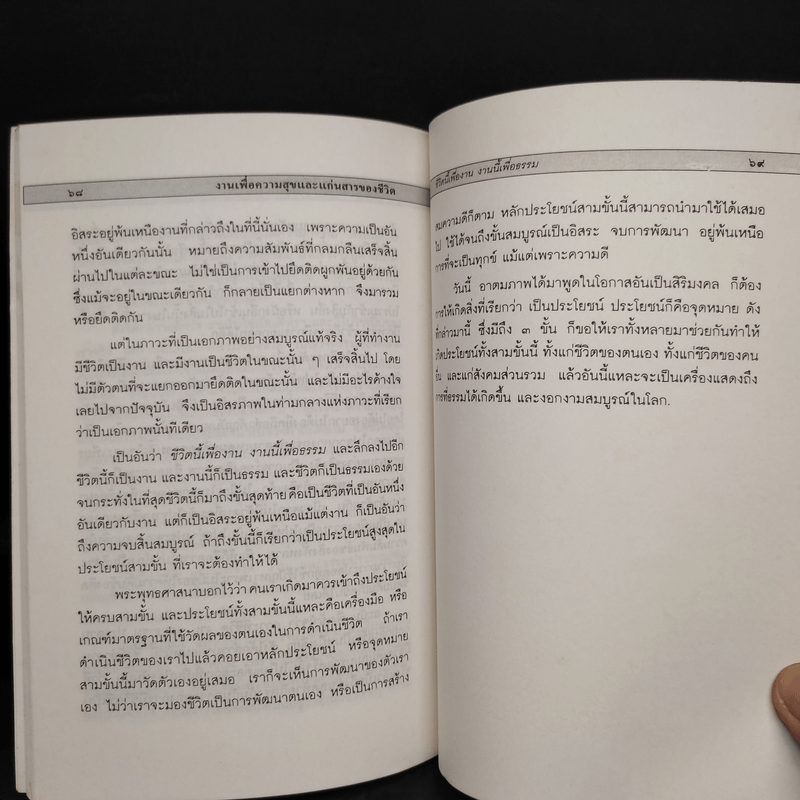 ๖๘ งานเพื่อความสุขและแก่นสารของชีวิต
อิสระอยู่พ้นเหนืองานที่กล่าวถึงในที่นี้นั่นเอง เพราะความเป็นอัน
หนึ่งอันเดียวกันนั้น หมายถึงความสัมพันธ์ที่กลมกลืนเสร็จสิ้น
ผ่านไปในแต่ละขณะ ไม่ใช่เป็นการเข้าไปยึดติดผูกพันอยู่ด้วยกัน
ซึ่งแม้จะอยู่ในขณะเดียวกัน ก็กลายเป็นแยกต่างหาก จึงมารวม
หรือยึดติดกัน
แต่ในภาวะที่เป็นเอกภาพอย่างสมบูรณ์แท้จริง ผู้ที่ทำงาน
มีชีวิตเป็นงาน และมีงานเป็นชีวิตในขณะนั้น ๆ เสร็จสิ้นไป โดย
ไม่มีตัวตนที่จะแยกออกมายึดติดในขณะนั้น และไม่มีอะไรค้างใจ
เลยไปจากปัจจุบัน จึงเป็นอิสรภาพในท่ามกลางแห่งภาวะที่เรียก
ว่าเป็นเอกภาพนั้นทีเดียว
เป็นอันว่า ชีวิตนี้เพื่องาน งานนี้เพื่อธรรม และลึกลงไปอีก
ชีวิตนี้ก็เป็นงาน และงานนี้ก็เป็นธรรม และชีวิตก็เป็นธรรมเองด้วย
จนกระทั่งในที่สุดชีวิตนี้ก็มาถึงขั้นสุดท้าย คือเป็นชีวิตที่เป็นอันหนึ่ง
อันเดียวกับงาน แต่ก็เป็นอิสระอยู่พ้นเหนือแม้แต่งาน ก็เป็นอันว่า
ถึงความจบสิ้นสมบูรณ์ ถ้าถึงขั้นนี้ก็เรียกว่าเป็นประโยชน์สูงสุดใน
ประโยชน์สามขั้น ที่เราจะต้องทำให้ได้
พระพุทธศาสนาบอกไว้ว่า คนเราเกิดมาควรเข้าถึงประโยชน์
ให้ครบสามขั้น และประโยชน์ทั้งสามขั้นนี้แหละคือเครื่องมือ หรือ
เกณฑ์มาตรฐานที่ใช้วัดผลของตนเองในการดำเนินชีวิต ถ้าเรา
ดำเนินชีวิตของเราไปแล้วคอยเอาหลักประโยชน์ หรือจุดหมาย
สามขั้นนี้มาวัดตัวเองอยู่เสมอ เราก็จะเห็นการพัฒนาของตัวเรา
เอง ไม่ว่าเราจะมองชีวิตเป็นการพัฒนาตนเอง หรือเป็นการสร้าง
ชีวิตนี้เพื่องาน งานนี้เพื่อธรรม ๖๙
สมความดีก็ตาม หลักประโยชน์สามขั้นนี้สามารถนำมาใช้ได้เสมอ
ไป ใช้ได้จนถึงขั้นสมบูรณ์เป็นอิสระ จบการพัฒนา อยู่พ้นเหนือ
การที่จะเป็นทุกข์ แม้แต่เพราะความดี
วันนี้ อาตมภาพได้มาพูดในโอกาสอันเป็นสิริมงคล ก็ต้อง
การให้เกิดสิ่งที่เรียกว่า เป็นประโยชน์ ประโยชน์ก็คือจุดหมาย ดัง
ที่กล่าวมานี้ ซึ่งมีถึง ๓ ขั้น ก็ขอให้เราทั้งหลายมาช่วยกันทำให้
เกิดประโยชน์ทั้งสามขั้นนี้ ทั้งแก่ชีวิตของตนเอง ทั้งแก่ชีวิตของคน
อื่น และแก่สังคมส่วนรวม แล้วอันนี้แหละจะเป็นเครื่องแสดงถึง
การที่ธรรมได้เกิดขึ้น และงอกงามสมบูรณ์ในโลก.